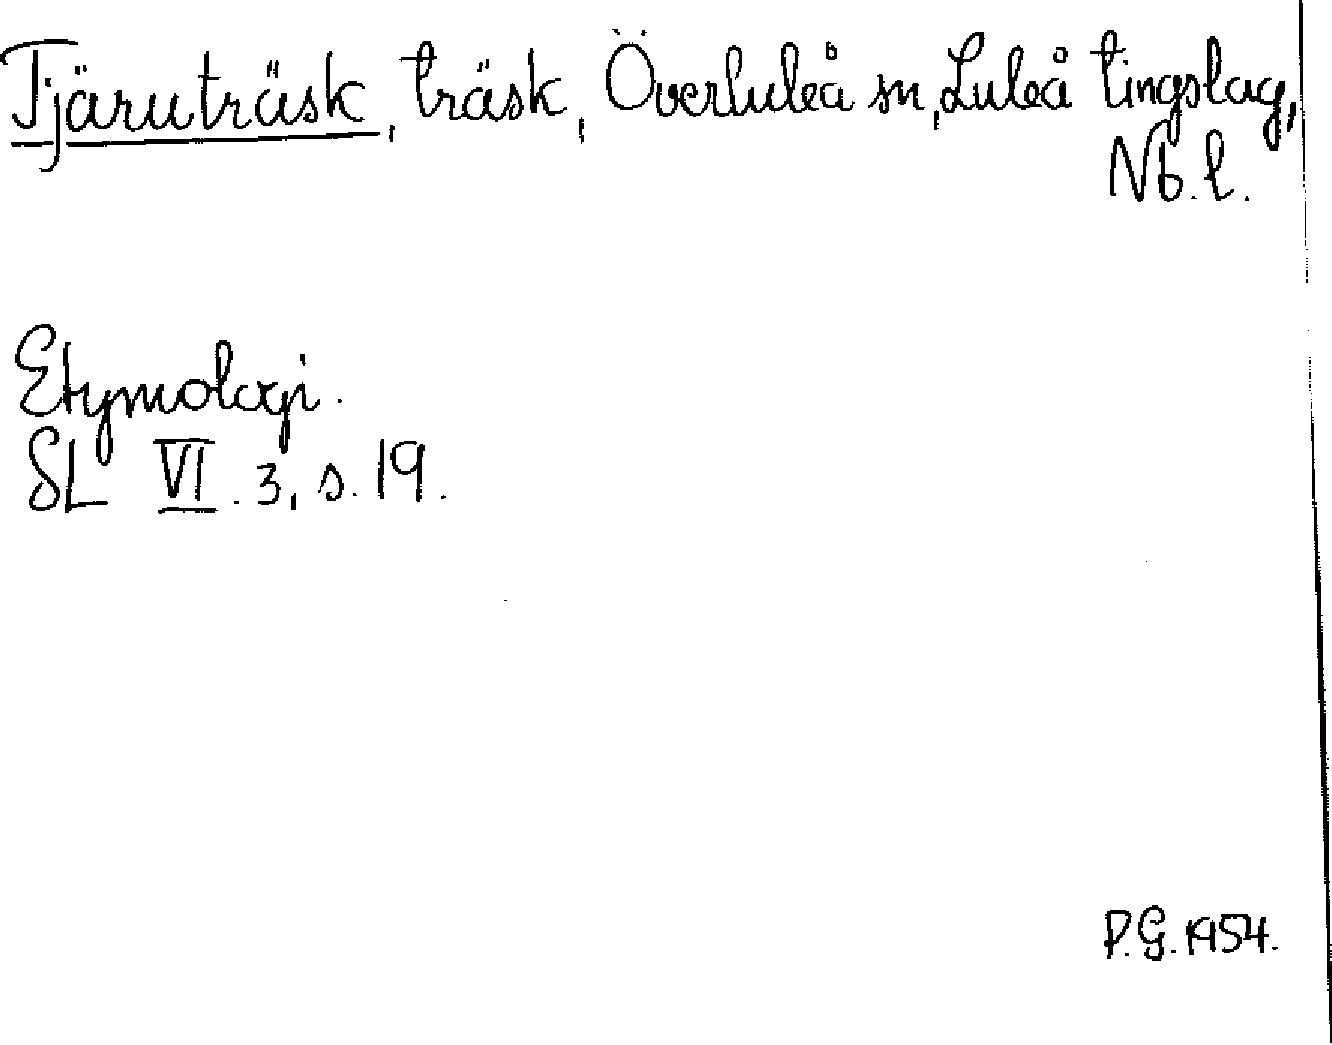 Tjäruträsk, träsk, Överluleå sn, Luleå tingslag,
Nb.l.
Etymologi.
SL VI. 3, s. 19.
P.G. 1954.